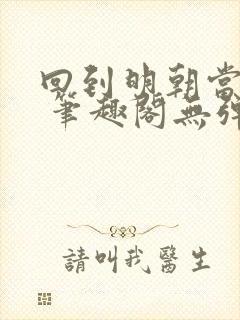 回到明朝當
筆趣閣無彈
請叫我醫生